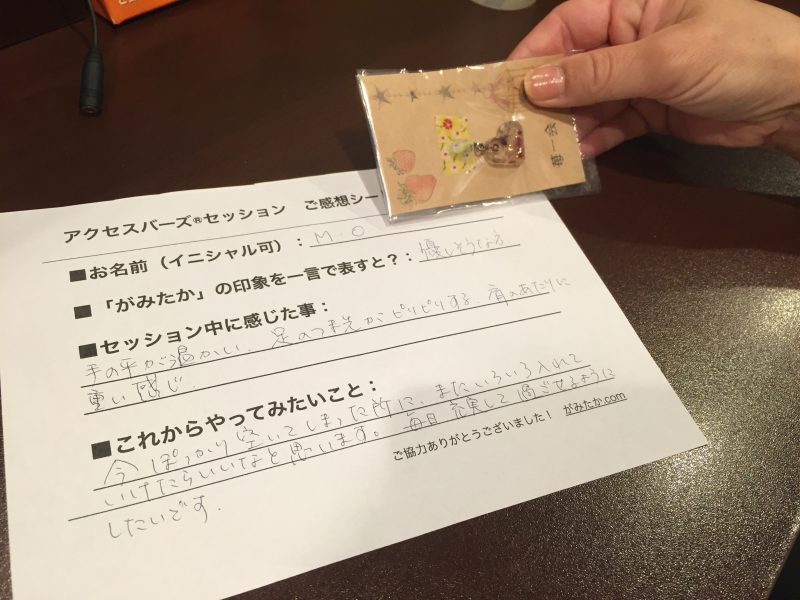 アクセスバーズ®セッション　ご感想シー
■お名前（イニシャル可）：M.O
■「がみたか」の印象を一言で表すと？：優しそうな方
■セッション中に感じた事：
手の平が温かい、足のつま先がピリピリする、肩のあたりに
重い感じ.
■これからやってみたいこと：
今ぽっかり空いてしまった所に、またいろいろ入れて
いけたらいいなと思います。毎日充実して過ごせるように
したいです.
ご協力ありがとうございました！　がみたか.com